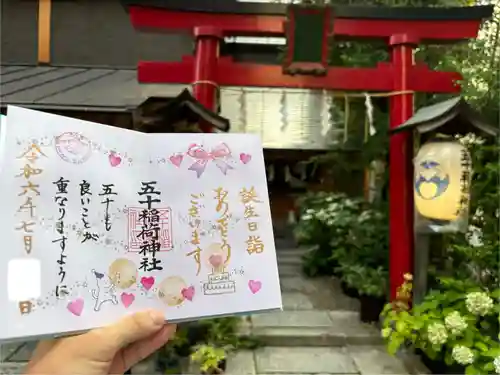 誕生日詣
ありがとう
ございます
五十稲荷神社
五十も
良いことが
重なりますように
令和六年七月
日
五十稲荷